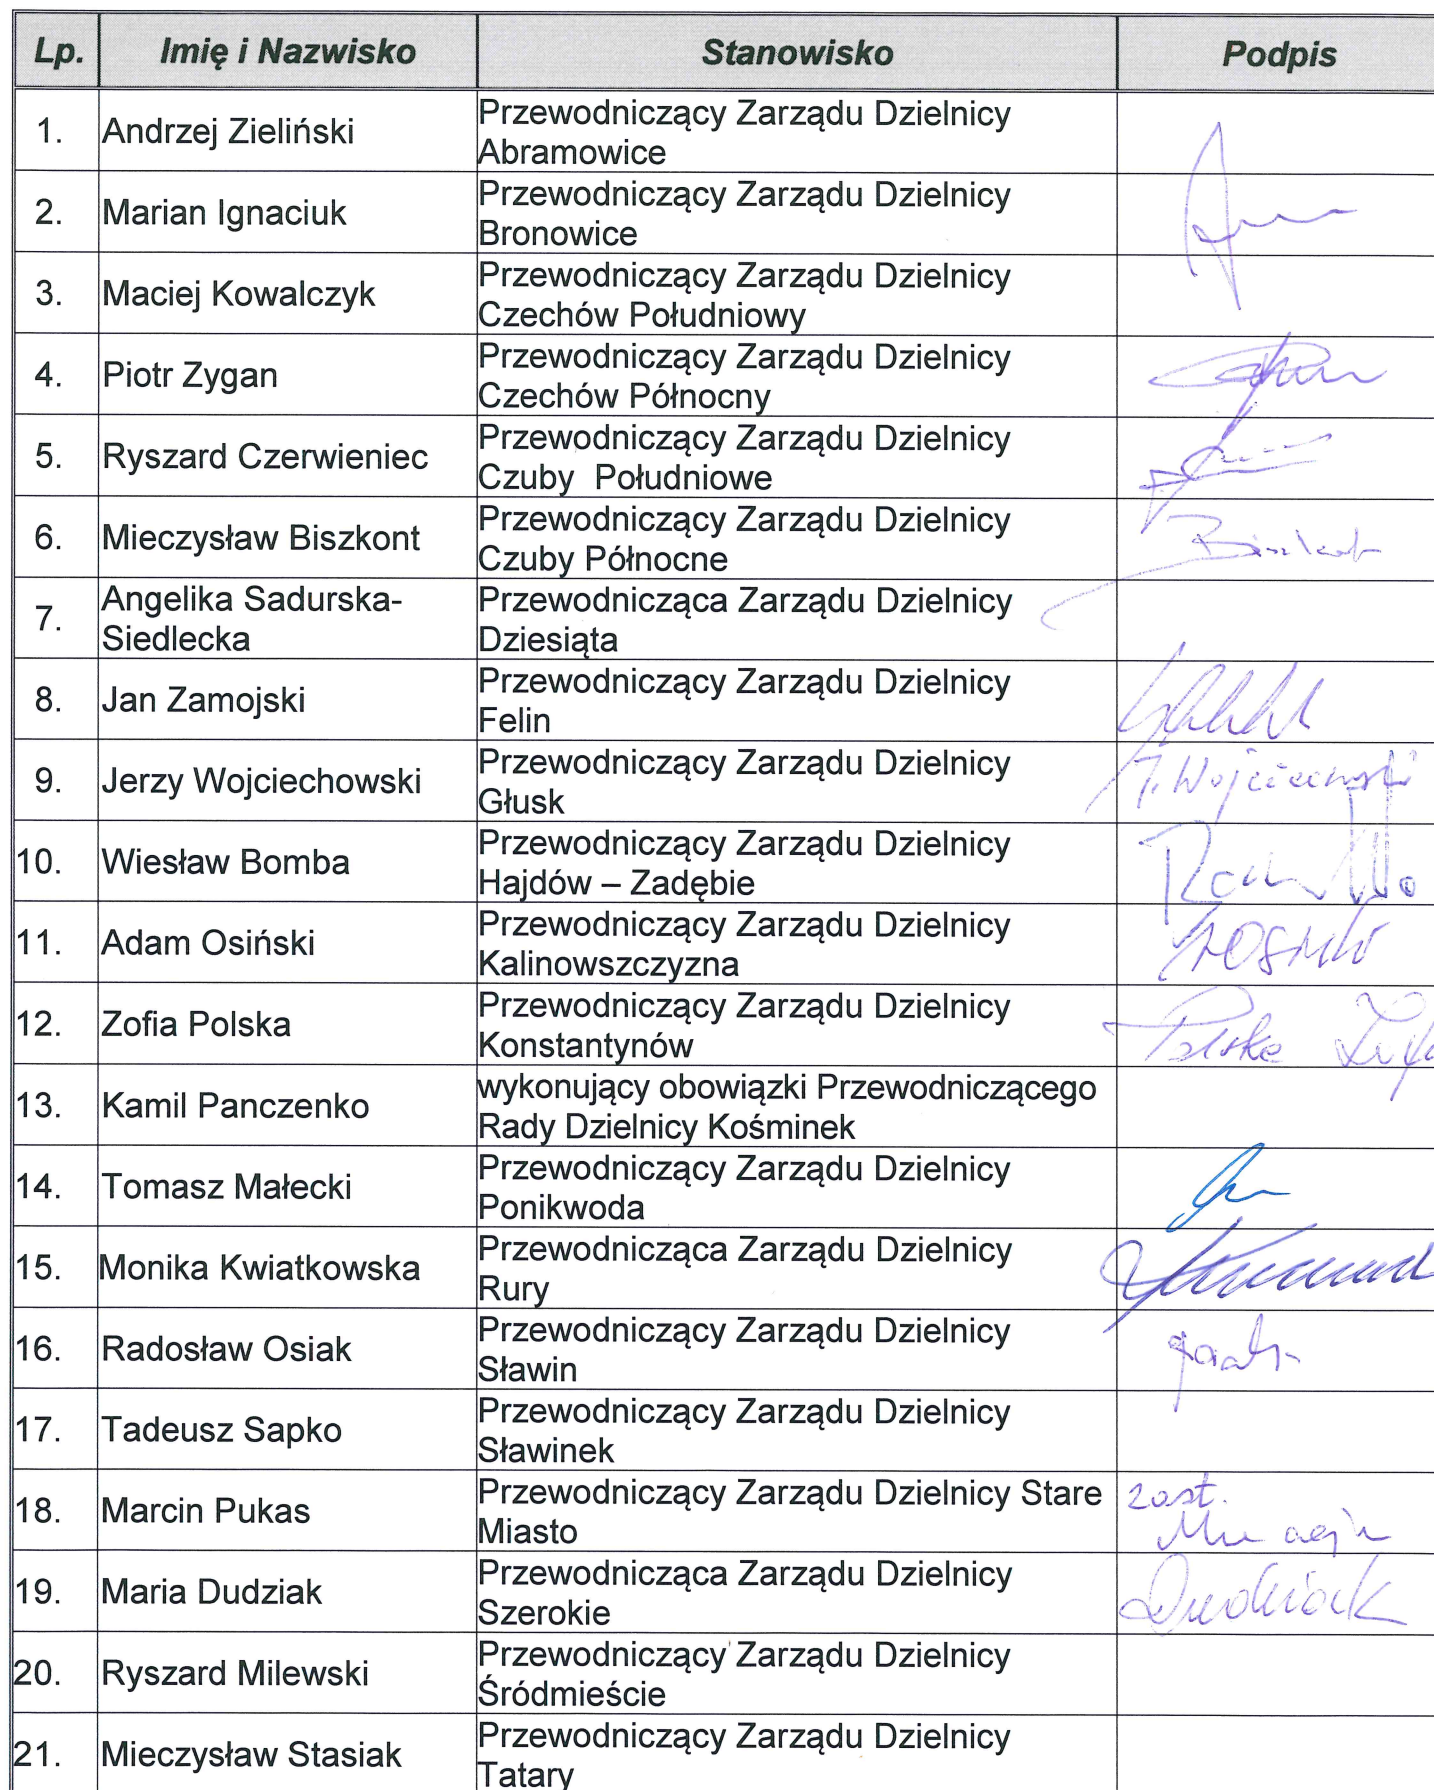 Lp. Imię i Nazwisko Stanowisko Podpis
1. Andrzej Zieliński Przewodniczący Zarządu Dzielnicy
Abramowice
2. Marian Ignaciuk Przewodniczący Zarządu Dzielnicy
Bronowice
3. Maciej Kowalczyk Przewodniczący Zarządu Dzielnicy
Czechów Południowy
4. Piotr Zygan Przewodniczący Zarządu Dzielnicy
Czechów Północny
5. Ryszard Czerwieniec Przewodniczący Zarządu Dzielnicy
Czuby Południowe
6. Mieczysław Biszkont Przewodniczący Zarządu Dzielnicy
Czuby Północne
7. Angelika Sadurska-
Siedlecka
Przewodnicząca Zarządu Dzielnicy
Dziesiąta
8. Jan Zamojski Przewodniczący Zarządu Dzielnicy
Felin
9. Jerzy Wojciechowski Przewodniczący Zarządu Dzielnicy
Głusk
10. Wiesław Bomba Przewodniczący Zarządu Dzielnicy
Hajdów – Zadębie
11. Adam Osiński Przewodniczący Zarządu Dzielnicy
Kalinowszczyzna
12. Zofia Polska Przewodniczący Zarządu Dzielnicy
Konstantynów
13. Kamil Panczenko wykonujący obowiązki Przewodniczącego
Rady Dzielnicy Kośminek
14. Tomasz Małecki Przewodniczący Zarządu Dzielnicy
Ponikwoda
15. Monika Kwiatkowska Przewodnicząca Zarządu Dzielnicy
Rury
16. Radosław Osiak Przewodniczący Zarządu Dzielnicy
Sławin
17. Tadeusz Sapko Przewodniczący Zarządu Dzielnicy
Sławinek
18. Marcin Pukas Przewodniczący Zarządu Dzielnicy Stare zast.
Miasto
19. Maria Dudziak Przewodnicząca Zarządu Dzielnicy Dudziak
Szerokie
20. Ryszard Milewski Przewodniczący Zarządu Dzielnicy
Śródmieście
21. Mieczysław Stasiak Przewodniczący Zarządu Dzielnicy
Tatary